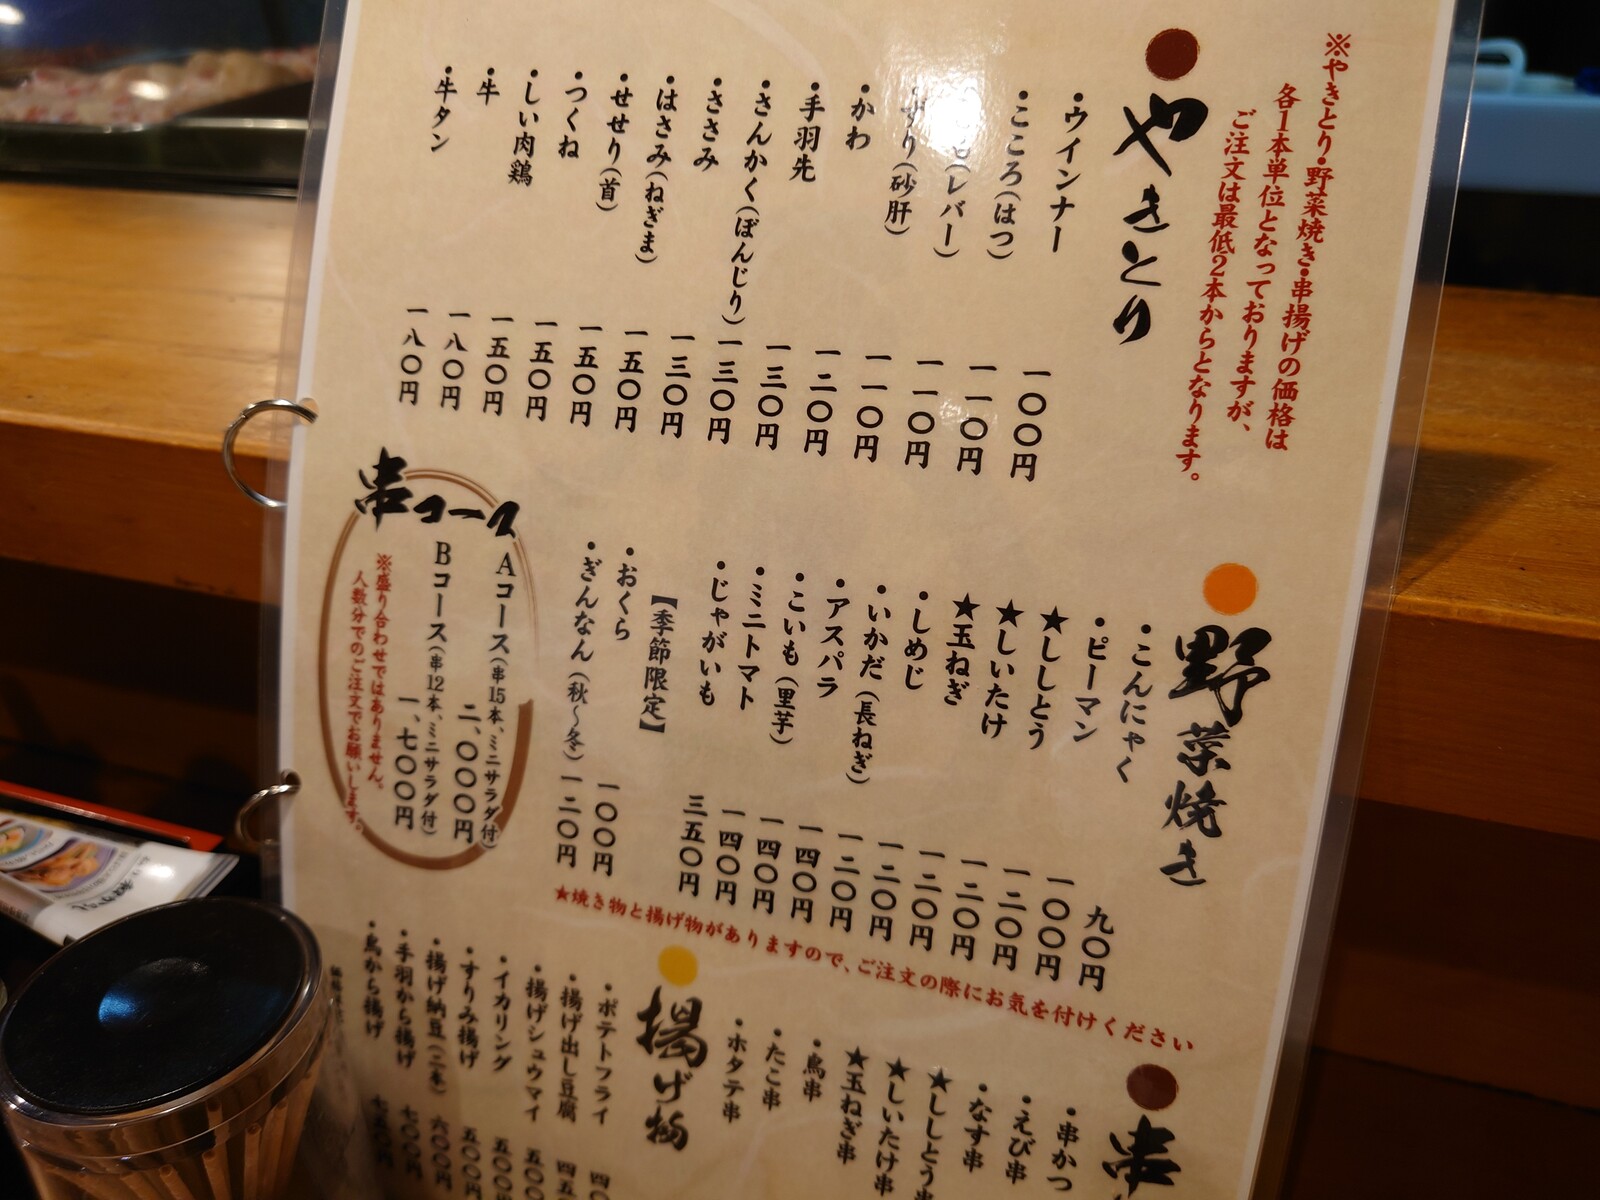 ※やきとり・野菜焼き・串揚げの価格は
各1本単位となっておりますが、
ご注文は最低2本からとなります。
やきとり
・ウインナー 一〇〇円
・こころ(はつ) 一一〇円
(レバー) 一一〇円
ずり(砂肝) 一一〇円
・かわ 一二〇円
・手羽先 一三〇円
・さんかく(ぼんじり) 一三〇円
・ささみ 一三〇円
・はさみ(ねぎま) 一五〇円
・せせり(首) 一五〇円
・つくね 一五〇円
・しい肉鶏 一五〇円
・牛 一八〇円
・牛タン 一八〇円
野菜焼き
・こんにゃく 九〇円
・ピーマン 一〇〇円
★ししとう 一二〇円
★しいたけ 一二〇円
★玉ねぎ 一二〇円
・しめじ 一二〇円
・いかだ(長ねぎ) 一二〇円
・アスパラ 一四〇円
・こいも(里芋) 一四〇円
・ミニトマト 一四〇円
・じゃがいも 三五〇円
【季節限定】
・おくら 一〇〇円
・ぎんなん(秋〜冬) 一二〇円
★焼き物と揚げ物がありますので、ご注文の際にお気を付けください
串コース
Aコース(串15本、ミニサラダ付)
二、〇〇〇円
Bコース(串12本、ミニサラダ付)
一、七〇〇円
※盛り合わせではありません。
人数分でのご注文でお願いします。
串
・串かつ
・えび串
・なす串
★ししとう串
★しいたけ串
★玉ねぎ串
・鳥串
・たこ串
・ホタテ串
揚げ物
・ポテトフライ
・揚げ出し豆腐
・揚げシュウマイ
・イカリング
・すりみ揚げ
・揚げ納豆(二本) 六〇〇円
・手羽から揚げ 七〇〇円
・鳥から揚げ 七五〇円